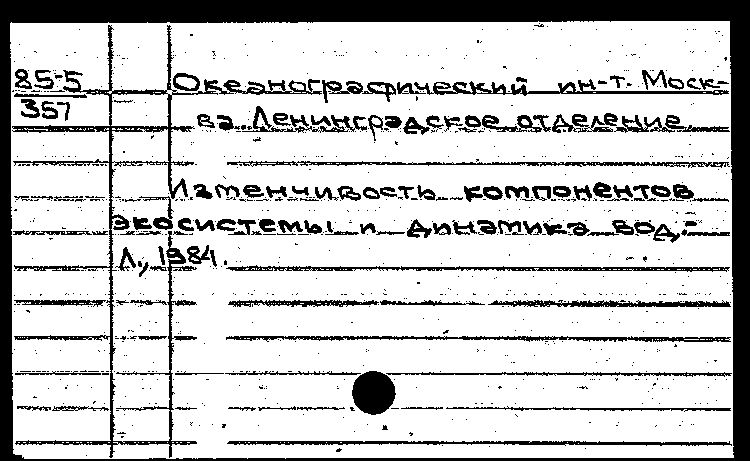 85-5
357
Океанографический ин-т. Моск-
ва Ленинградское отделение.
Изменчивость компонентов
экосистемы и динамика вод.-
Л., 1984.